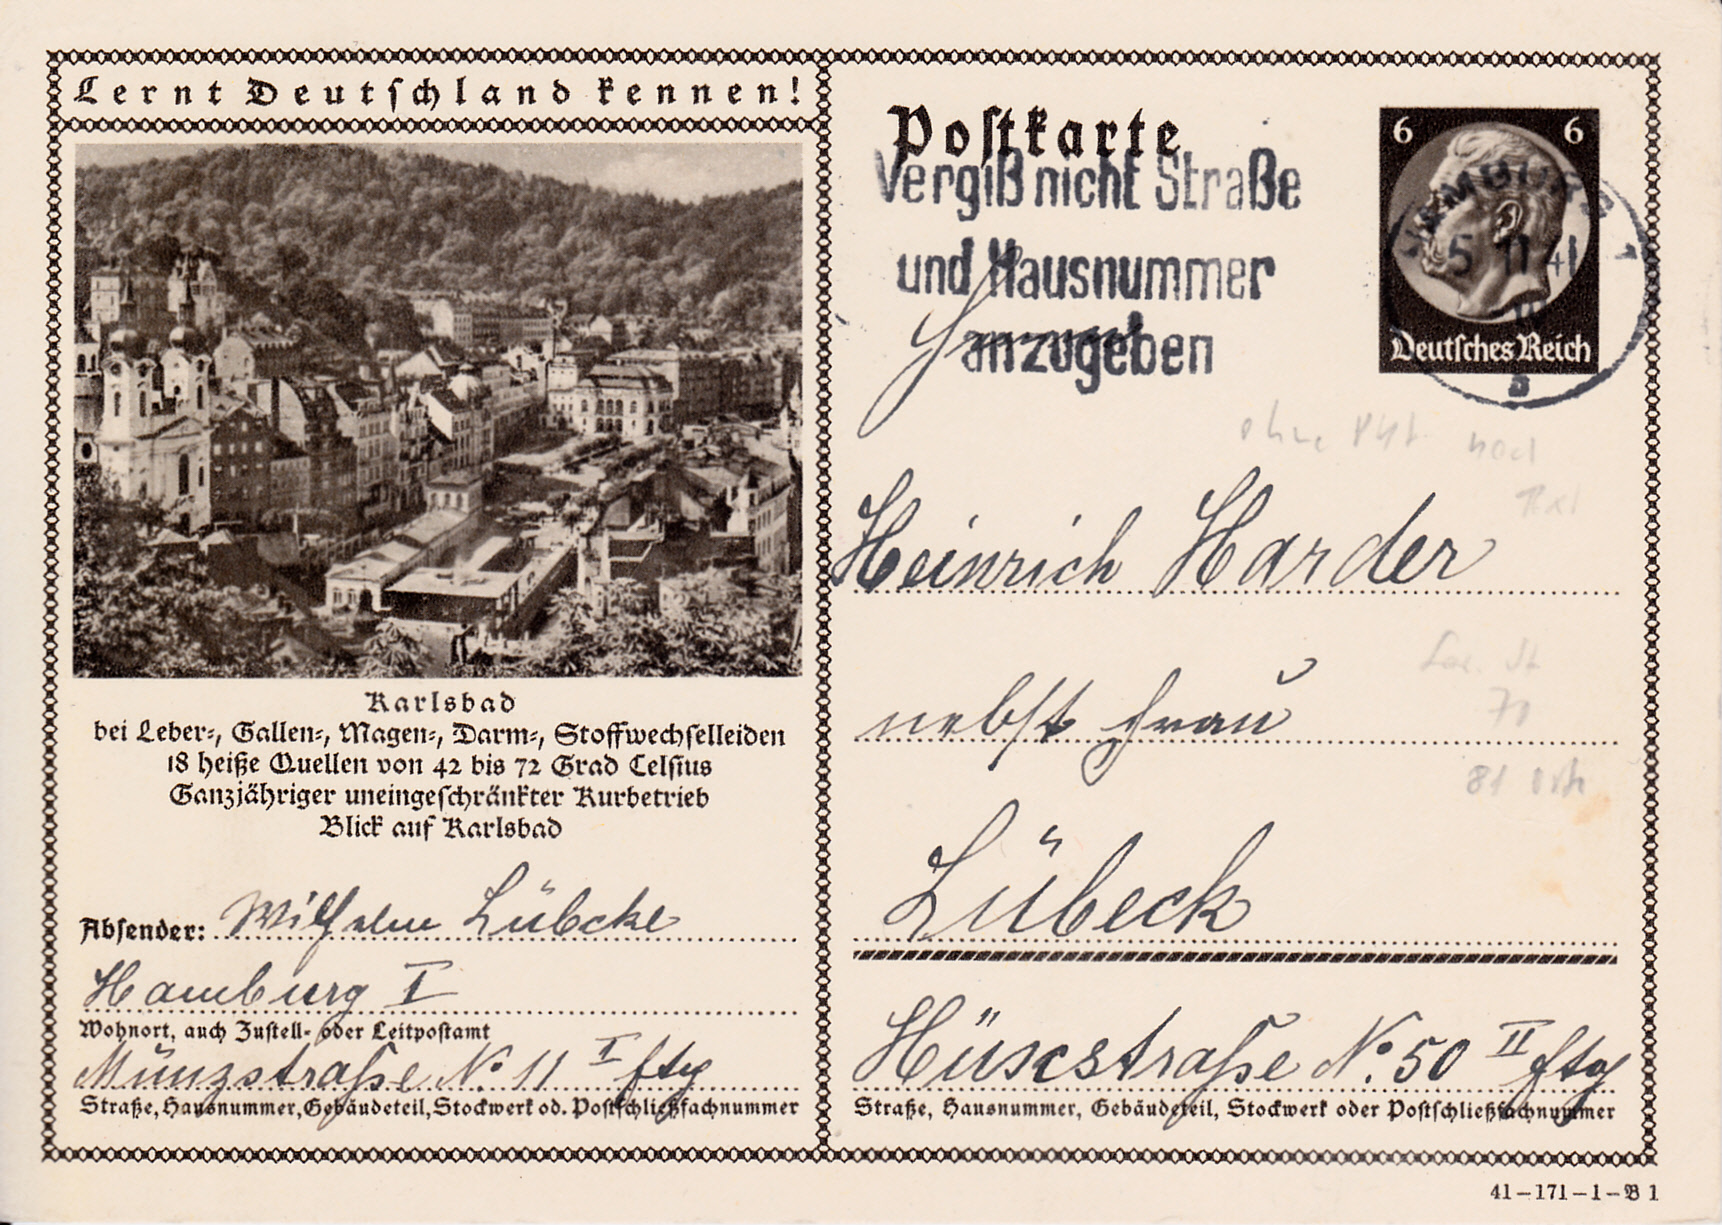 Lernt Deutschland kennen!
Karlsbad
bei Leber-, Gallen-, Magen-, Darm-, Stoffwechselleiden
18 heiße Quellen von 42 bis 72 Grad Celsius
Ganzjähriger uneingeschränkter Kurbetrieb
Blick auf Karlsbad
Absender: Wilhelm Lübcke
Hamburg I
Wohnort, auch Zustell- oder Leitpostamt
Münzstraße No. 11 I Etg
Straße, Hausnummer, Gebäudeteil, Stockwerk od. Postschließfachnummer
Postkarte
Vergiß nicht Straße
und Hausnummer
anzugeben
6 6
Deutsches Reich
HAMBURG 1
5 11 41
ohne
Heinrich Harder
nebst Frau
71
81
Lübeck
Hüxstraße No. 50 II Etg
Straße, Hausnummer, Gebäudeteil, Stockwerk oder Postschließfachnummer
41-171-1-B 1